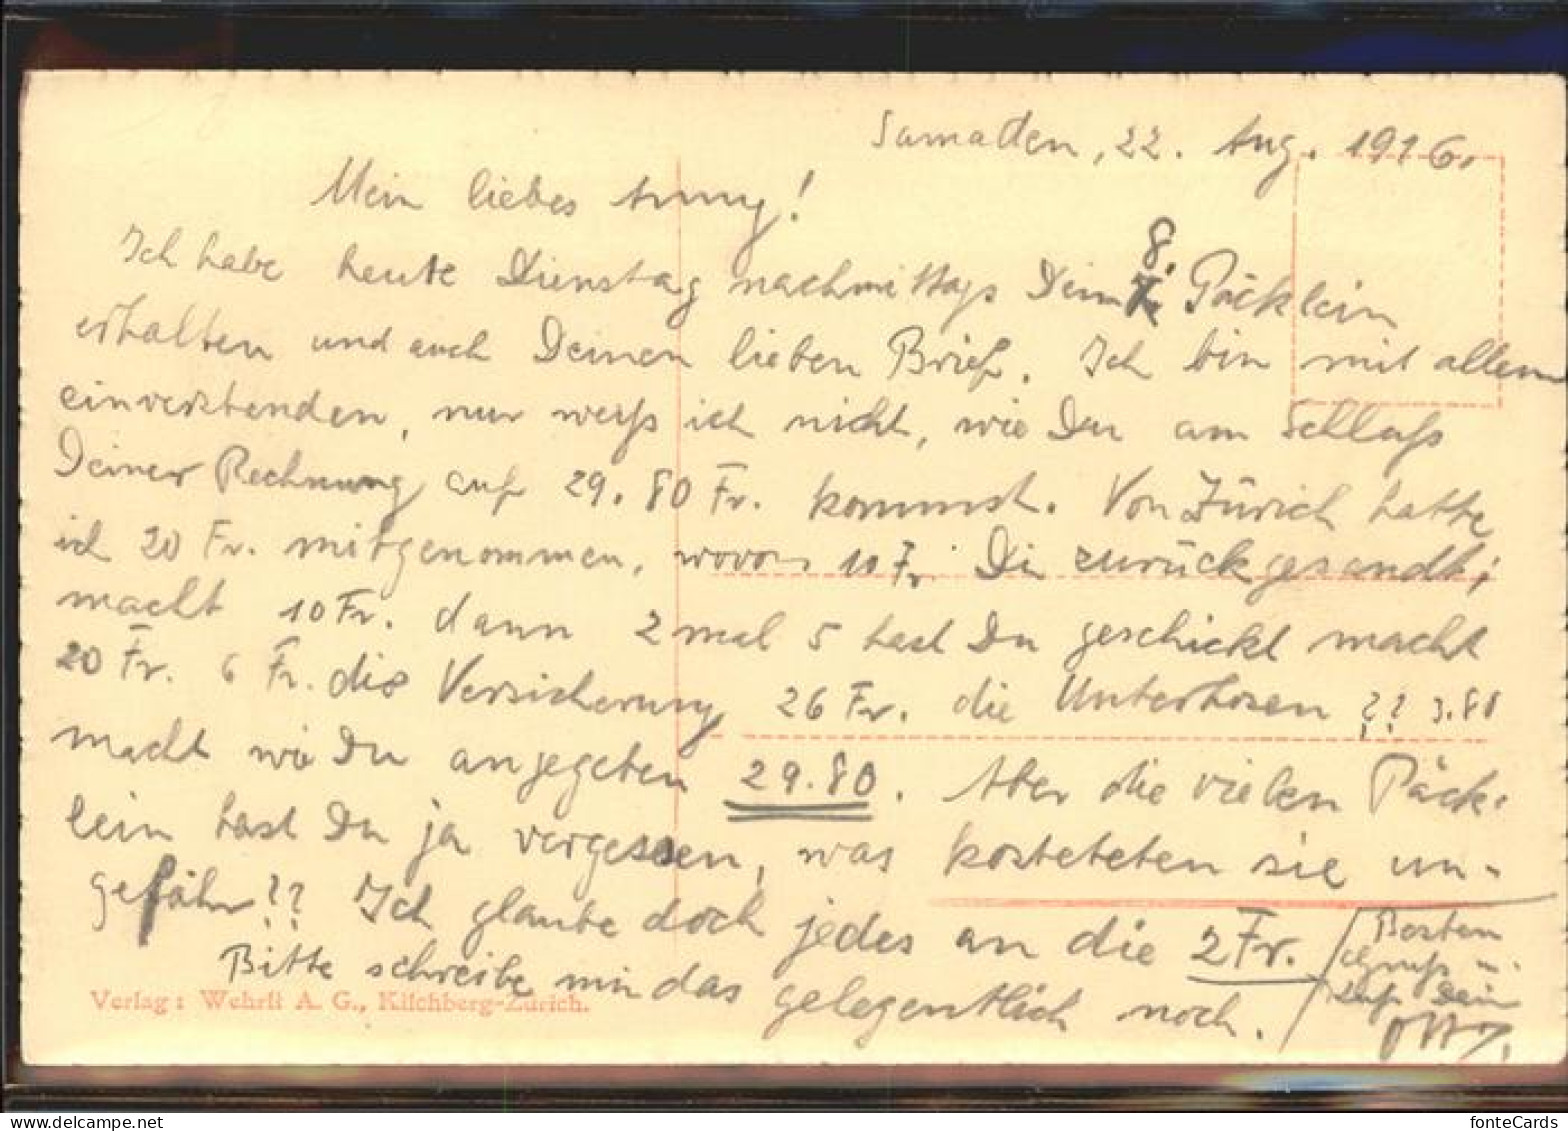 Samaden, 22. Aug. 1916.
Mein liebes Anny!
Ich habe heute Dienstag nachmittags Dein 8. Päcklein
erhalten und auch Deinen lieben Brief. Ich bin mit allem
einverstanden, nur weiß ich nicht, wie Du am Schluß
Deiner Rechnung auf 29.80 Fr. kommst. Von Zürich hatte
ich 20 Fr. mitgenommen, wovon 10 Fr. Dir zurückgesandt;
macht 10 Fr. dann 2 mal 5 hast Du geschickt macht
20 Fr. 6 Fr. die Versicherung 26 Fr. die Unterhosen ?? 3.80
macht wie Du angegeben 29.80. Aber die vielen Päck-
lein hast Du ja vergessen, was kosteteten sie un-
gefähr?? Ich glaube doch jedes an die 2 Fr.
Bitte schreibe mir das gelegentlich noch.
Besten
Gruß u.
Kuß Dein
Otto.
Verlag: Wehrli A. G., Kilchberg-Zürich.
fonteCards